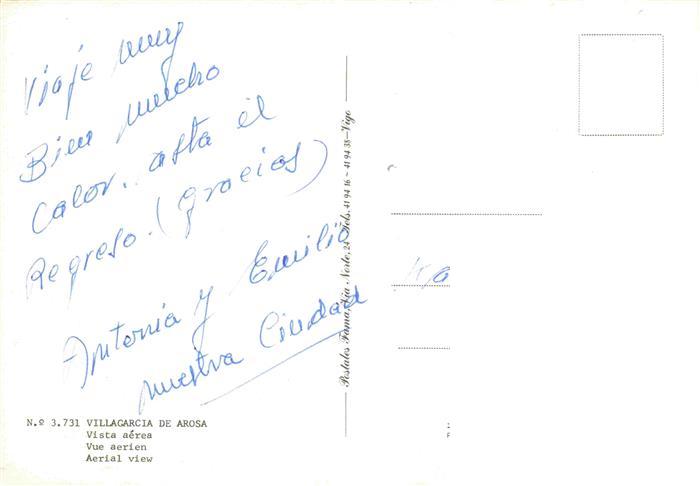 Viaje muy
Bien mucho
Calor. asta el
Regreso. (gracias)
Antonia y Emilio
nuestra Ciudad
N.º 3.731 VILLAGARCIA DE AROSA
Vista aérea
Vue aerien
Aerial view
Postales Fama. Vía-Norte, 24 Tels. 41 94 16 - 41 94 33 - Vigo